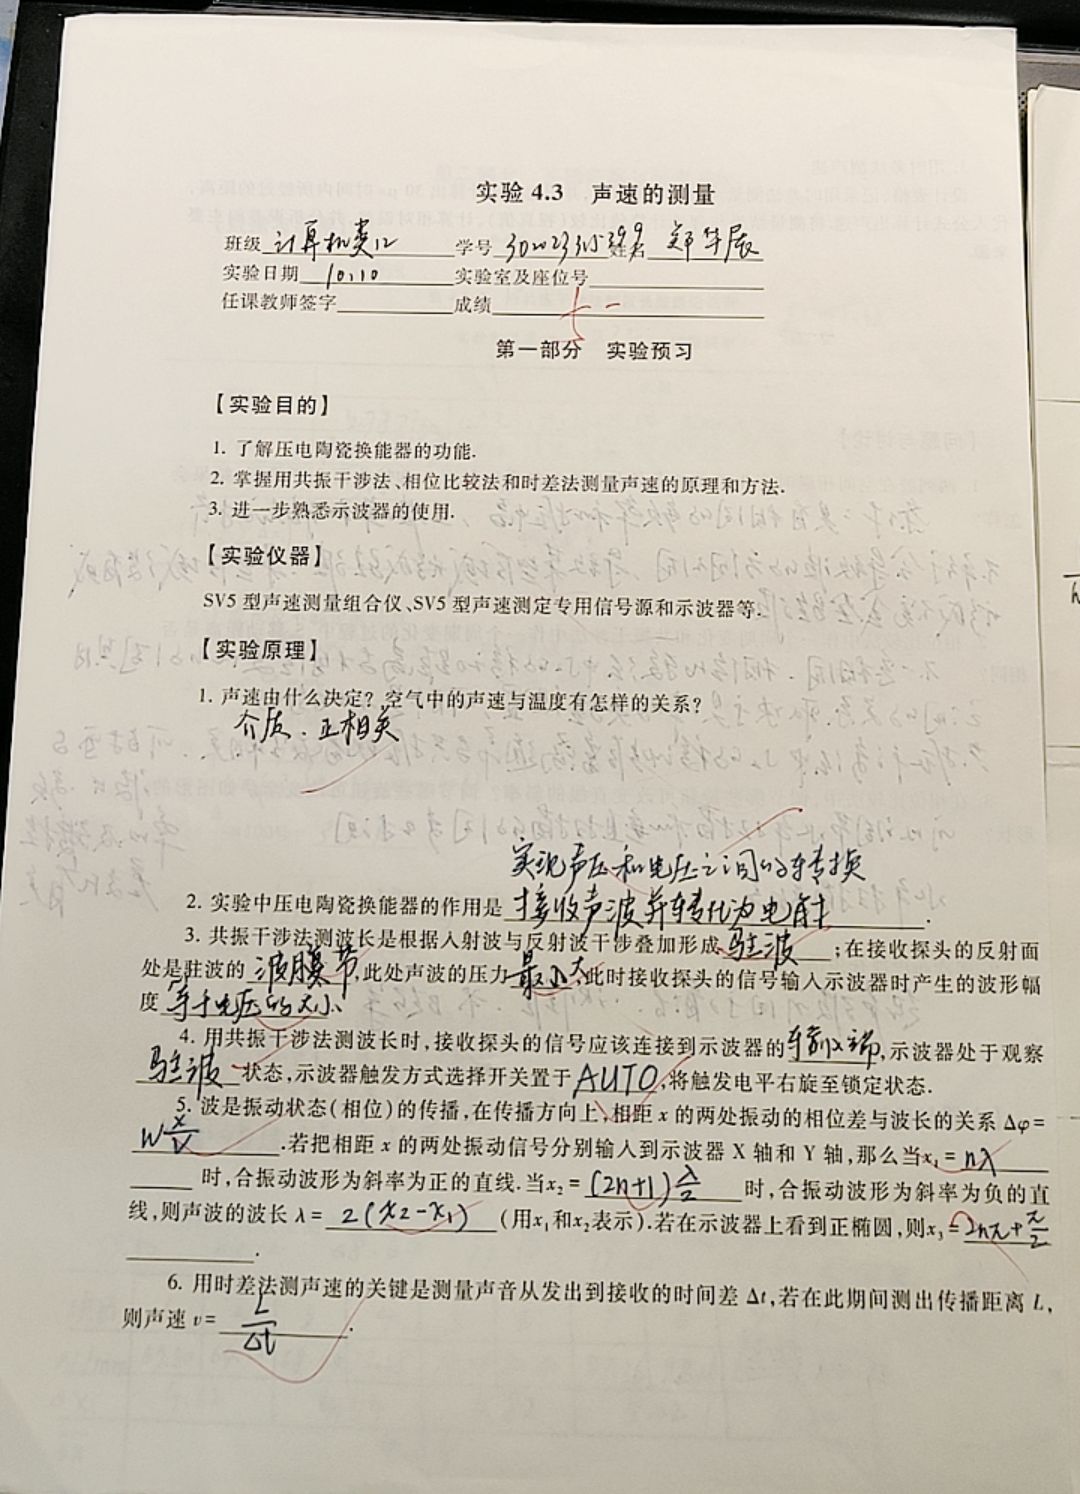 实验 4.3 声速的测量
班级 计算机类12 学号 3022315399 姓名 郑华展
实验日期 10.10 实验室及座位号
任课教师签字 成绩
第一部分 实验预习
【实验目的】
1. 了解压电陶瓷换能器的功能.
2. 掌握用共振干涉法、相位比较法和时差法测量声速的原理和方法.
3. 进一步熟悉示波器的使用.
【实验仪器】
SV5 型声速测量组合仪、SV5 型声速测定专用信号源和示波器等.
【实验原理】
1. 声速由什么决定?空气中的声速与温度有怎样的关系?
介质.正相关
实现声压和电压之间的转换
2. 实验中压电陶瓷换能器的作用是 接收声波并转化为电射 .
3. 共振干涉法测波长是根据入射波与反射波干涉叠加形成 驻波 ;在接收探头的反射面
处是驻波的 波节,此处声波的压力 最大,此时接收探头的信号输入示波器时产生的波形幅
度 等于电压的大小
4. 用共振干涉法测波长时,接收探头的信号应该连接到示波器的 输入端,示波器处于观察
驻波 状态,示波器触发方式选择开关置于 AUTO,将触发电平右旋至锁定状态.
5. 波是振动状态(相位)的传播,在传播方向上,相距 x 的两处振动的相位差与波长的关系 Δφ=
W x/v .若把相距 x 的两处振动信号分别输入到示波器 X 轴和 Y 轴,那么当x₁ = nλ
时,合振动波形为斜率为正的直线.当x₂ = (2n+1)λ/2 时,合振动波形为斜率为负的直
线,则声波的波长 λ = 2(x2-x1) (用x₁和x₂表示).若在示波器上看到正椭圆,则x₃ = 2nπ+π/2
.
6. 用时差法测声速的关键是测量声音从发出到接收的时间差 Δt,若在此期间测出传播距离 L,
则声速 v= L/Δt .